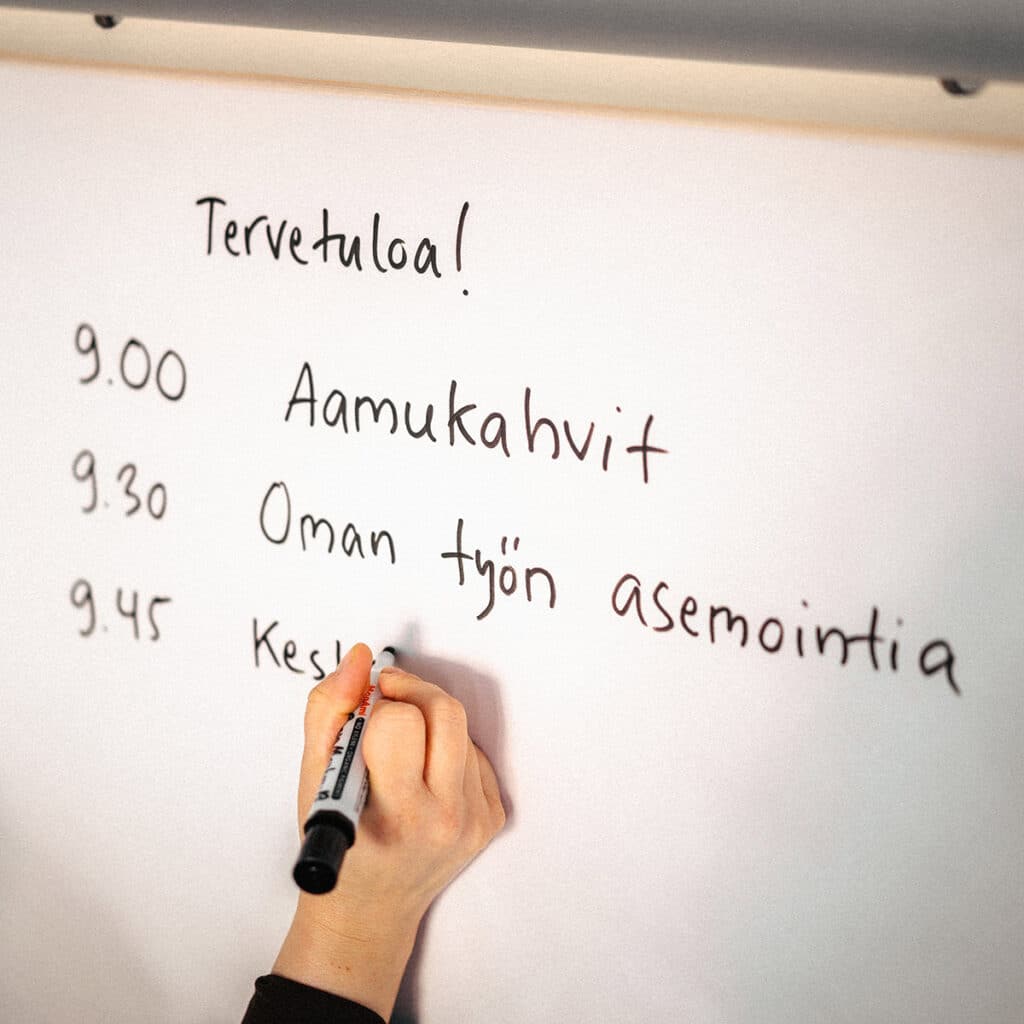 Tervetuloa!
9.00 Aamukahvit
9.30 Oman työn asemointia
9.45